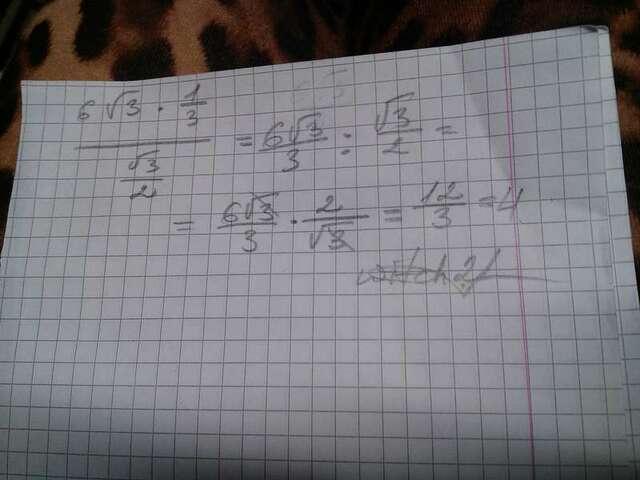 6 √3 · 1/3 / √3/2 = 6√3/3 : √3/2 =
= 6√3/3 · 2/√3 = 12/3 = 4